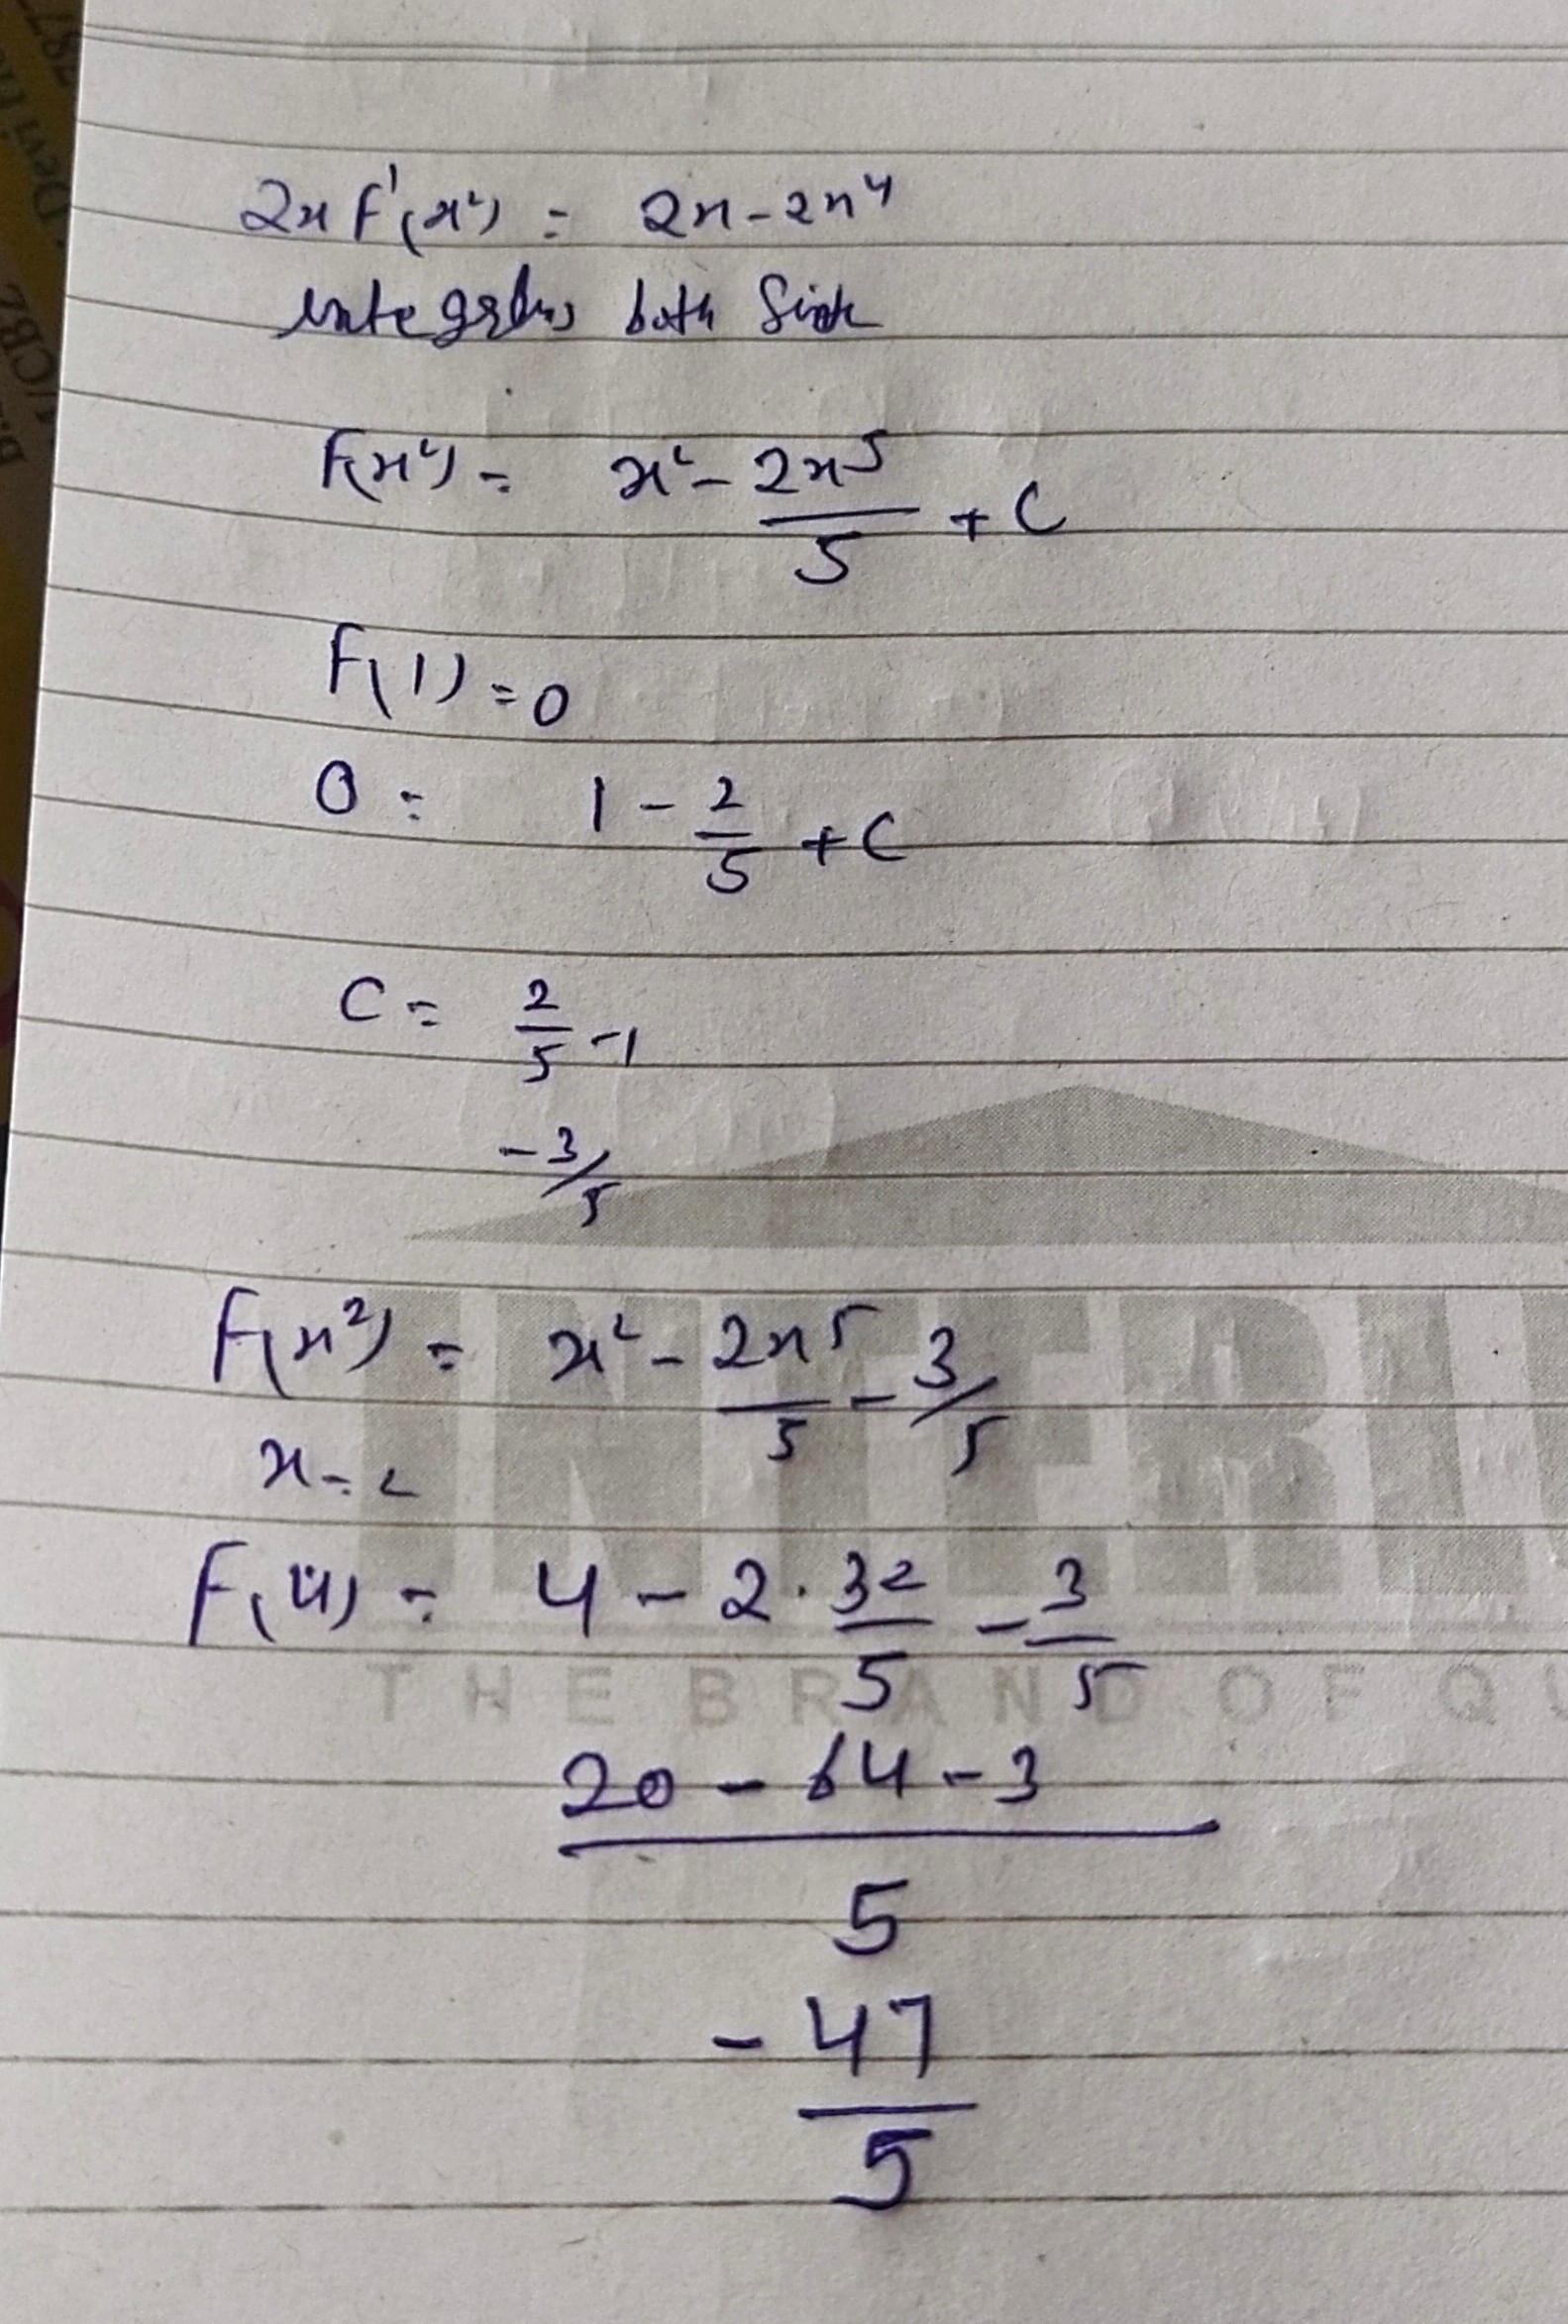 2x f'(x²) = 2x - 2x⁴
integrating both side
f(x²) = x² - 2x⁵/5 + C
f(1) = 0
0 = 1 - 2/5 + C
C = 2/5 - 1
- 3/5
f(x²) = x² - 2x⁵/5 - 3/5
x = 2
f(4) = 4 - 2 · 32/5 - 3/5
INTERL
THE BRAND OF QU
20 - 64 - 3
5
- 47
5